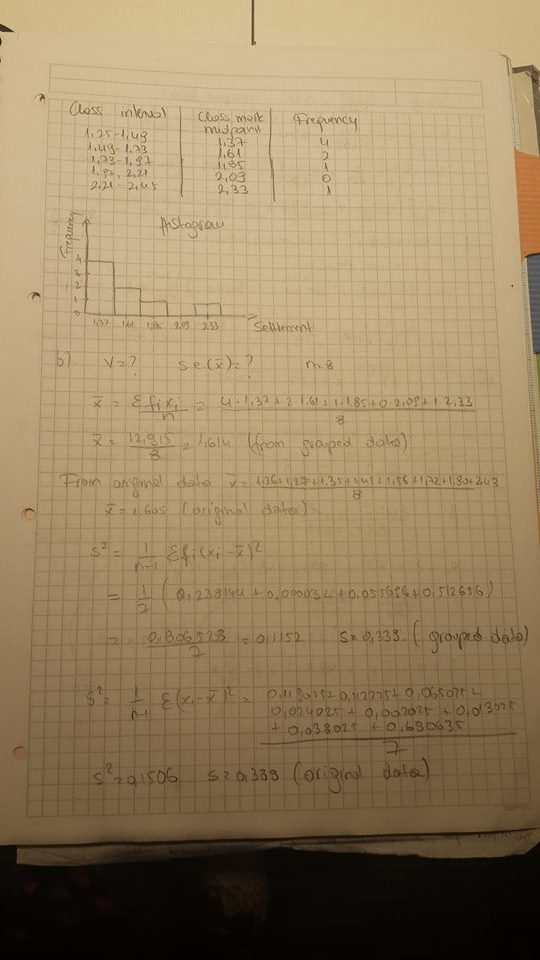 Class interval | Class mark midpoint | Frequency
1,25-1,49 | 1,37 | 4
1,49-1,73 | 1,61 | 2
1,73-1,97 | 1,85 | 1
1,97-2,21 | 2,09 | 0
2,21-2,45 | 2,33 | 1
Histogram
Frequency
4
3
2
1
0
1,37 1,61 1,85 2,09 2,33 Settlement
b) V=? s.e.(x̄)=? n=8
x̄ = Σfixi/n = 4·1,37+2·1,61+1·1,85+0·2,09+1·2,33/8
x̄ = 12,915/8 = 1,614 (from grouped data)
From original data x̄ = 1,26+1,27+1,35+1,45+1,56+1,72+1,80+2,43/8
x̄ = 1,605 (original data)
S² = 1/n-1 Σfi(xi-x̄)²
= 1/7 (0,238144+0,000032+0,055696+0,512656)
= 0,806528/7 = 0,1152 S=0,339 (grouped data)
S² = 1/n-1 Σ(xi-x̄)² = 0,119025+0,112225+0,065025+
0,024025+0,002025+0,013225
+0,038025+0,680635
7
S²=0,1506 S=0,389 (original data)